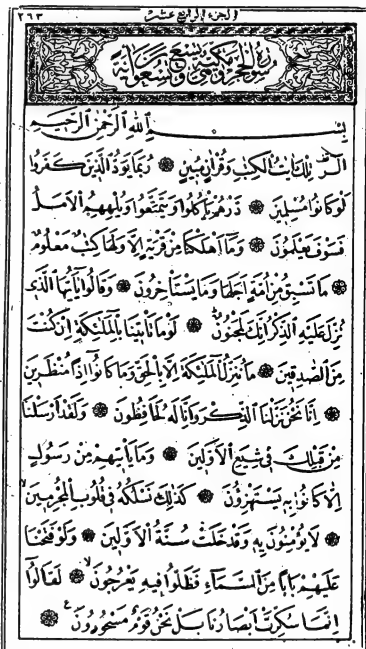 الجزء الرابع عشر ٢٦٣
سورة الحجر مكية وهي تسع وتسعون آية
بِسْمِ اللهِ الرَّحْمٰنِ الرَّحِيمِ
الٓرٰ تِلْكَ اٰيَاتُ الْكِتَابِ وَقُرْاٰنٍ مُبِينٍ ۝ رُبَمَا يَوَدُّ الَّذِينَ كَفَرُوا
لَوْ كَانُوا مُسْلِمِينَ ۝ ذَرْهُمْ يَأْكُلُوا وَيَتَمَتَّعُوا وَيُلْهِهِمُ الْأَمَلُ
فَسَوْفَ يَعْلَمُونَ ۝ وَمَا أَهْلَكْنَا مِنْ قَرْيَةٍ إِلَّا وَلَهَا كِتَابٌ مَعْلُومٌ
۝ مَا تَسْبِقُ مِنْ أُمَّةٍ أَجَلَهَا وَمَا يَسْتَأْخِرُونَ ۝ وَقَالُوا يَا أَيُّهَا الَّذِي
نُزِّلَ عَلَيْهِ الذِّكْرُ إِنَّكَ لَمَجْنُونٌ ۝ لَوْ مَا تَأْتِينَا بِالْمَلٰئِكَةِ إِنْ كُنْتَ
مِنَ الصَّادِقِينَ ۝ مَا نُنَزِّلُ الْمَلٰئِكَةَ إِلَّا بِالْحَقِّ وَمَا كَانُوا إِذًا مُنْظَرِينَ
۝ إِنَّا نَحْنُ نَزَّلْنَا الذِّكْرَ وَإِنَّا لَهُ لَحَافِظُونَ ۝ وَلَقَدْ أَرْسَلْنَا
مِنْ قَبْلِكَ فِي شِيَعِ الْأَوَّلِينَ ۝ وَمَا يَأْتِيهِمْ مِنْ رَسُولٍ
إِلَّا كَانُوا بِهِ يَسْتَهْزِؤُنَ ۝ كَذٰلِكَ نَسْلُكُهُ فِي قُلُوبِ الْمُجْرِمِينَ
۝ لَا يُؤْمِنُونَ بِهِ وَقَدْ خَلَتْ سُنَّةُ الْأَوَّلِينَ ۝ وَلَوْ فَتَحْنَا
عَلَيْهِمْ بَابًا مِنَ السَّمَاءِ فَظَلُّوا فِيهِ يَعْرُجُونَ ۝ لَقَالُوا
إِنَّمَا سُكِّرَتْ أَبْصَارُنَا بَلْ نَحْنُ قَوْمٌ مَسْحُورُونَ ۝